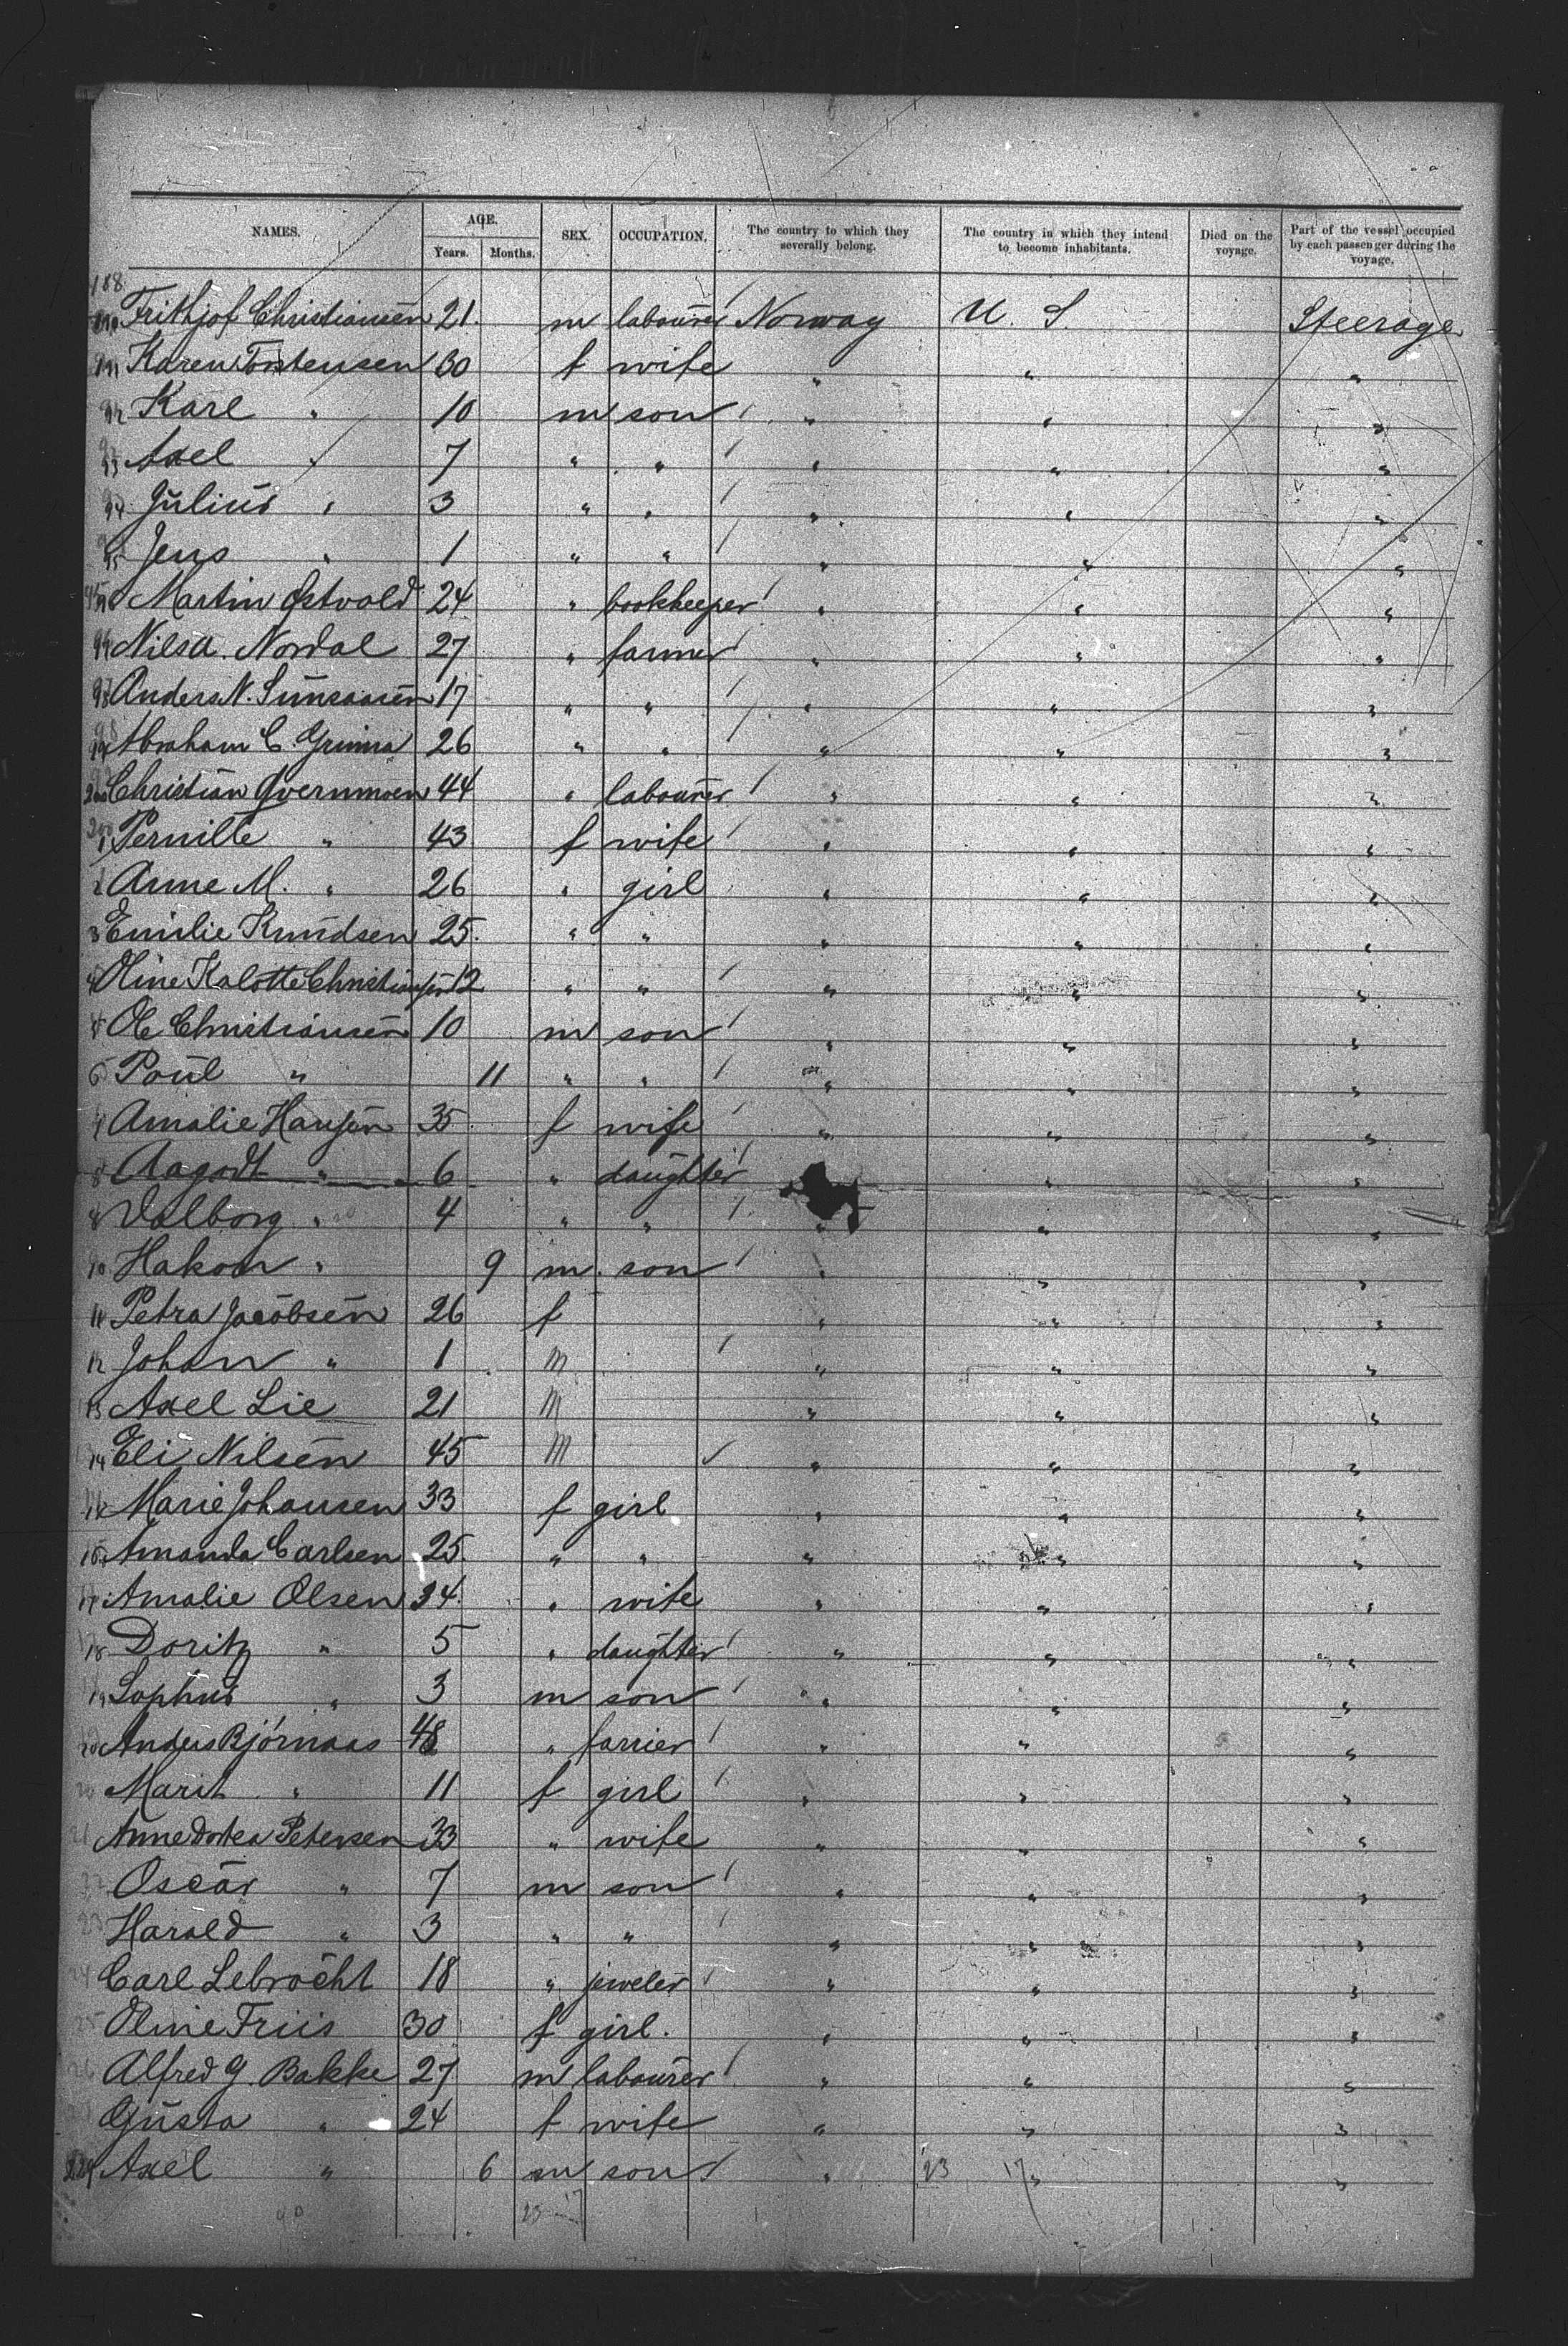 NAMES. AGE. Years. Months. SEX. OCCUPATION. The country to which they severally belong. The country in which they intend to become inhabitants. Died on the voyage. Part of the vessel occupied by each passenger during the voyage.
188
Frithjof Christiansen 21. m labourer Norway U. S. Steerage
91 Karen Torstensen 30 f wife " " "
92 Karl " 10 m son " " "
93 Axel " 7 " " " " "
94 Julius " 3 " " " " "
95 Jens " 1 " " " " "
Martin Østvold 24 " bookkeeper " " "
Nils A. Nordal 27 " farmer " " "
98 Anders N. 17 " " " " "
99 Abraham C. Grimra 26 " " " " "
200 Christian 44 " labourer " " "
1 Pernille " 43 f wife " " "
2 Anne M. " 26 " girl " " "
3 Emilie Knudsen 25. " " " " "
4 Oline Kalotte Christiansen 12 " " " " "
5 Ole Christiansen 10 m son " " "
6 Paul " 11 " " " " "
7 Amalie Hansen 35 f wife " " "
8 Aagodt " 6 " daughter " "
9 Valborg " 4 " " " " "
10 Hakon " 9 m. son " " "
11 Petra Jacobsen 26 f " " "
12 Johan " 1 m " " "
13 Axel Lie 21 m " " "
14 Eli Nilsen 45 m " " "
Marie Johansen 33 f girl " " "
16 Amanda Carlsen 25. " " " " "
17 Amalie Olsen 34. " wife " " "
18 Doritz " 5 " daughter " " "
19 Sophus " 3 m son " " "
20 Anders Bjórnaas 48 " farrier " " "
Marit " 11 f girl " " "
21 Anne Dortea Petersen 33 " wife " " "
22 Oscar " 7 m son " " "
23 Harald " 3 " " " " "
24 Carl Lebrócht 18 " jeweler " " "
25 Oline Friis 30 f girl. " " "
26 Alfred G. Bakke 27 m labourer " " "
Gusta " 24 f wife " " "
229 Axel " 6 m son " 23 17 " "
40 23 17